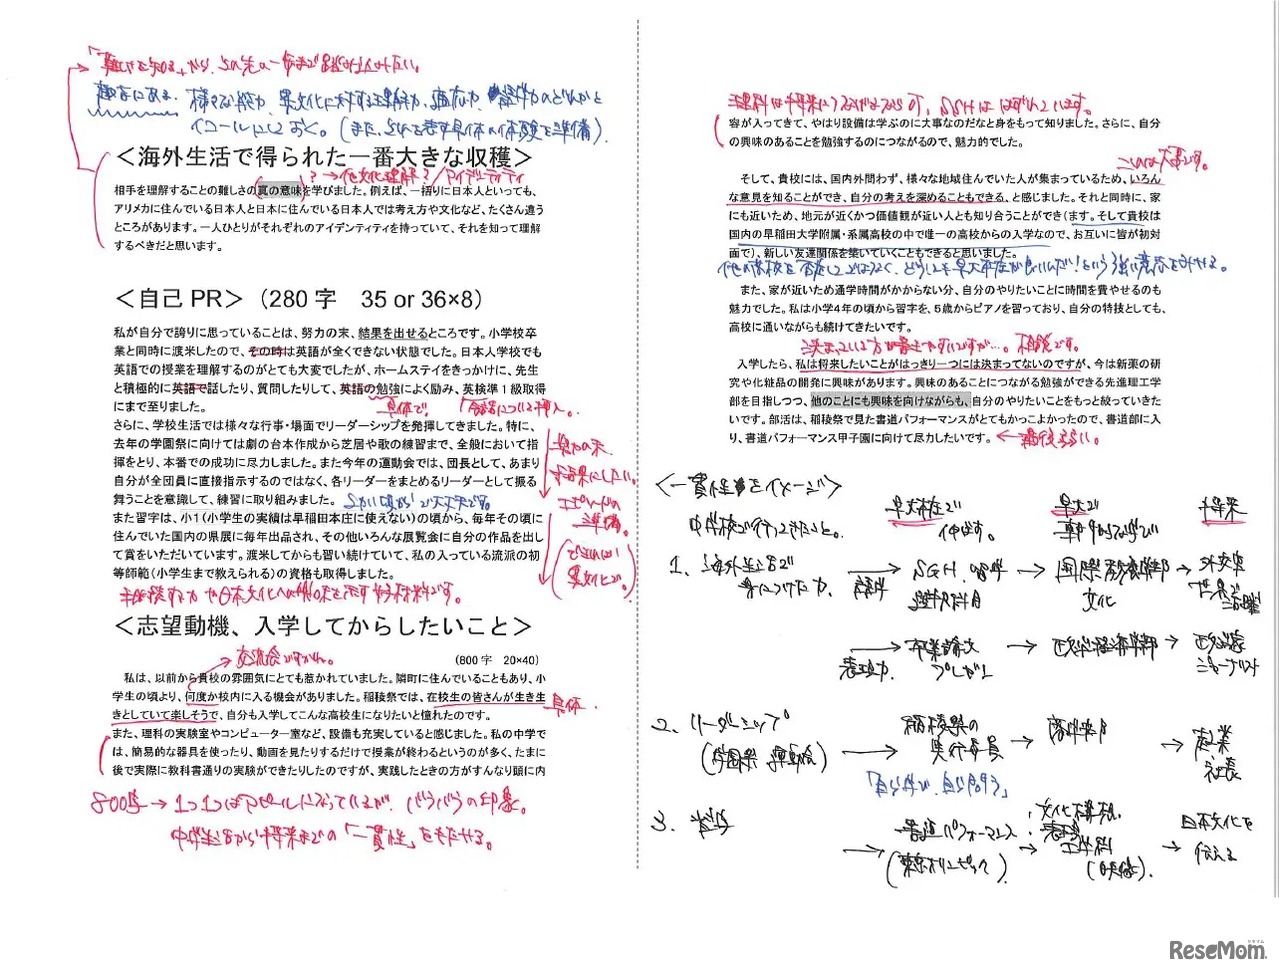 「難しさを知る」から、その先の一歩まで踏み込みたい。
様々な能力、異文化に対する理解力、適応力、
イコールにしておく。(また、それを表す具体の体験を準備)
＜海外生活で得られた一番大きな収穫＞
？→他文化理解？／アイデンティティ
相手を理解することの難しさの真の意味を学びました。例えば、一括りに日本人といっても、
アリメカに住んでいる日本人と日本に住んでいる日本人では考え方や文化など、たくさん違う
ところがあります。一人ひとりがそれぞれのアイデンティティを持っていて、それを知って理解
するべきだと思います。
＜自己 PR＞（280 字　35 or 36×8）
私が自分で誇りに思っていることは、努力の末、結果を出せるところです。小学校卒
業と同時に渡米したので、その時は英語が全くできない状態でした。日本人学校でも
英語での授業を理解するのがとても大変でしたが、ホームステイをきっかけに、先生
と積極的に英語で話したり、質問したりして、英語の勉強によく励み、英検準１級取得
にまで至りました。
具体で。
さらに、学校生活では様々な行事・場面でリーダーシップを発揮してきました。特に、
去年の学園祭に向けては劇の台本作成から芝居や歌の練習まで、全般において指
揮をとり、本番での成功に尽力しました。また今年の運動会では、団長として、あまり
自分が全団員に直接指示するのではなく、各リーダーをまとめるリーダーとして振る
舞うことを意識して、練習に取り組みました。
努力の末
結果にしたい。
エピソードの
準備。
また習字は、小１(小学生の実績は早稲田本庄に使えない)の頃から、毎年その頃に
住んでいた国内の県展に毎年出品され、その他いろんな展覧会に自分の作品を出し
て賞をいただいています。渡米してからも習い続けていて、私の入っている流派の初
等師範(小学生まで教えられる)の資格も取得しました。
できれば
異文化で。
継続する力や日本文化への興味を示す好材料です。
＜志望動機、入学してからしたいこと＞
交流会ですかね。
（800 字　20×40）
私は、以前から貴校の雰囲気にとても惹かれていました。隣町に住んでいることもあり、小
学生の頃より、何度か校内に入る機会がありました。稲稜祭では、在校生の皆さんが生き生
きとしていて楽しそうで、自分も入学してこんな高校生になりたいと憧れたのです。
具体。
また、理科の実験室やコンピューター室など、設備も充実していると感じました。私の中学で
は、簡易的な器具を使ったり、動画を見たりするだけで授業が終わるというのが多く、たまに
後で実際に教科書通りの実験ができたりしたのですが、実践したときの方がすんなり頭に内
800字→1つ1つはアピールになっているが、バラバラの印象。
中学生活から将来までの「一貫性」をもたせる。
理科は将来につなげるなら可、SGHははずれています。
容が入ってきて、やはり設備は学ぶのに大事なのだなと身をもって知りました。さらに、自分
の興味のあることを勉強するのにつながるので、魅力的でした。
これは大事です。
そして、貴校には、国内外問わず、様々な地域住んでいた人が集まっているため、いろん
な意見を知ることができ、自分の考えを深めることもできる、と感じました。それと同時に、家
にも近いため、地元が近くかつ価値観が近い人とも知り合うことができ(ます。そして貴校は
国内の早稲田大学附属・系属高校の中で唯一の高校からの入学なので、お互いに皆が初対
面で)、新しい友達関係を築いていくこともできると思いました。
他の高校を否定してではなく、どうしても早大本庄が良いんだ！という強い意志を
また、家が近いため通学時間がかからない分、自分のやりたいことに時間を費やせるのも
魅力でした。私は小学４年の頃から習字を、５歳からピアノを習っており、自分の特技としても、
高校に通いながらも続けてきたいです。
決まっている方が書きやすいですが…。相談です。
入学したら、私は将来したいことがはっきり一つには決まってないのですが、今は新薬の研
究や化粧品の開発に興味があります。興味のあることにつながる勉強ができる先進理工学
部を目指しつつ、他のことにも興味を向けながらも、自分のやりたいことをもっと絞っていきた
いです。部活は、稲稜祭で見た書道パフォーマンスがとてもかっこよかったので、書道部に入
り、書道パフォーマンス甲子園に向けて尽力したいです。
←最後弱い。
＜一貫性をイメージ＞
中学校で行ってきたこと。
早大本庄で
伸ばす。
早大で
専門的な学び
将来
1、海外生活で
身につけた力
→ SGH、留学
選択科目
→ 国際教養学部
文化
→ 外交官
世界で活躍
→ 卒業論文
表現力
プレゼン
→ 政治経済学部
→ 政治家
ジャーナリスト
2、リーダーシップ
(学園祭 運動会)
→ 稲稜祭の
実行委員
「自ら学び、自ら問う」
→ 商学部
→ 起業
社長
3、書道
→ 書道パフォーマンス
(東京オリンピック)
→ 日本文化を
伝える
ReseMom